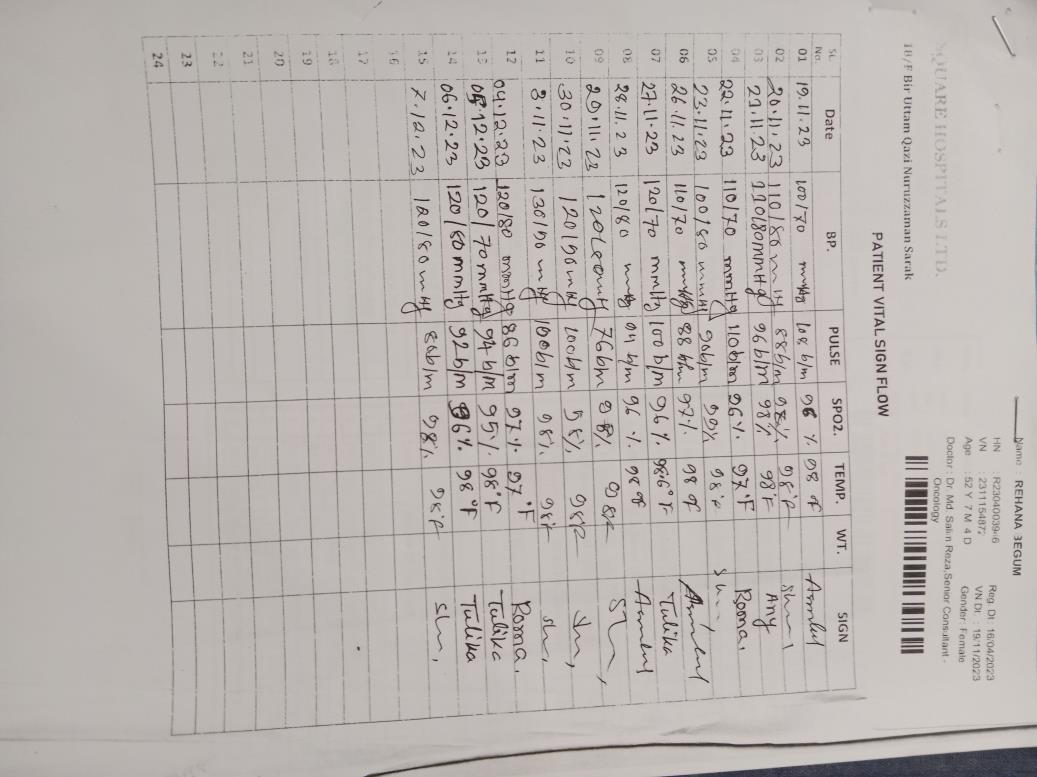 SQUARE HOSPITALS LTD.
18/F Bir Uttam Qazi Nuruzzaman Sarak
Name : REHANA BEGUM
HN : Reg. Dt: 16/04/2023
VN : VN Dt. : 19/11/2023
Age : 52 Y 7 M 4 D Gender: Female
Doctor : Dr. Md. Salim Reza, Senior Consultant -
Oncology
PATIENT VITAL SIGN FLOW
SL No. Date BP. PULSE SPO2. TEMP. WT. SIGN
01 19.11.23 100/70 mmHg 108 b/m 96 %. 98 °F
02 20.11.23 110/80 mmHg 88 b/m 98%. 98°F
03 21.11.23 110/80mmHg 96 b/m 98% 98°F Any
04 22.11.23 110/70 mmHg 110 b/m 96%. 97°F Roma.
05 23.11.23 100/80 mmHg 90b/m 99% 98°F
06 26.11.23 110/70 mmHg 88 b/m 97%. 98 °F
07 27.11.23 120/70 mmHg 100 b/m 96%. 98.6°F Tulika
08 28.11.23 120/80 mmHg 96 %. 98 °F
09 29.11.23 76b/m 98% 98°F
10 30.11.23 120/90 mmHg 100b/m 98% 98°F
11 3.11.23 130/90 mmHg 100b/m 98% 98°F
12 04.12.23 120/80 mmHg 86 b/m 97%. 97°F Roma.
13 05.12.23 120/70 mmHg 94 b/m 95%. 98°F Tulika
14 06.12.23 120/80 mmHg 92 b/m 96%. 98°F Tulika
15 7.12.23 120/80 mmHg 80b/m 98%. 98°F
16
17
18
19
20
21
22
23
24